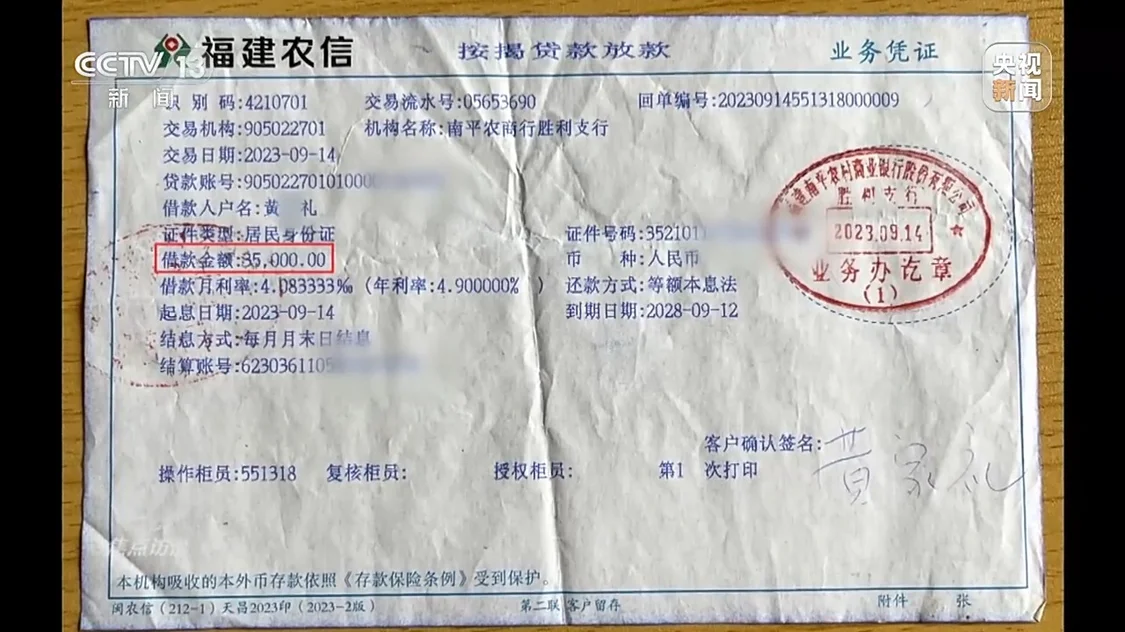 CCTV 13 福建农信 按揭贷款放款 业务凭证
新闻
央视
新闻
识别码:4210701 交易流水号:05653690 回单编号:20230914551318000009
交易机构:905022701 机构名称:南平农商行胜利支行
交易日期:2023-09-14
贷款账号:90502270101000
借款人户名:黄 礼
证件类型:居民身份证 证件号码:3521011
借款金额:35,000.00 币 种:人民币
借款月利率:4.083333‰ (年利率:4.900000% ) 还款方式:等额本息法
起息日期:2023-09-14 到期日期:2028-09-12
结息方式:每月月末日结息
结算账号:6230361105
福建南平农村商业银行股份有限公司
胜利支行
2023.09.14
业务办讫章
(1)
客户确认签名:
黄家礼
操作柜员:551318 复核柜员: 授权柜员: 第1 次打印
焦点访谈
本机构吸收的本外币存款依照《存款保险条例》受到保护。
闽农信(212-1)天昌2023印(2023-2版) 第二联 客户留存 附件 张